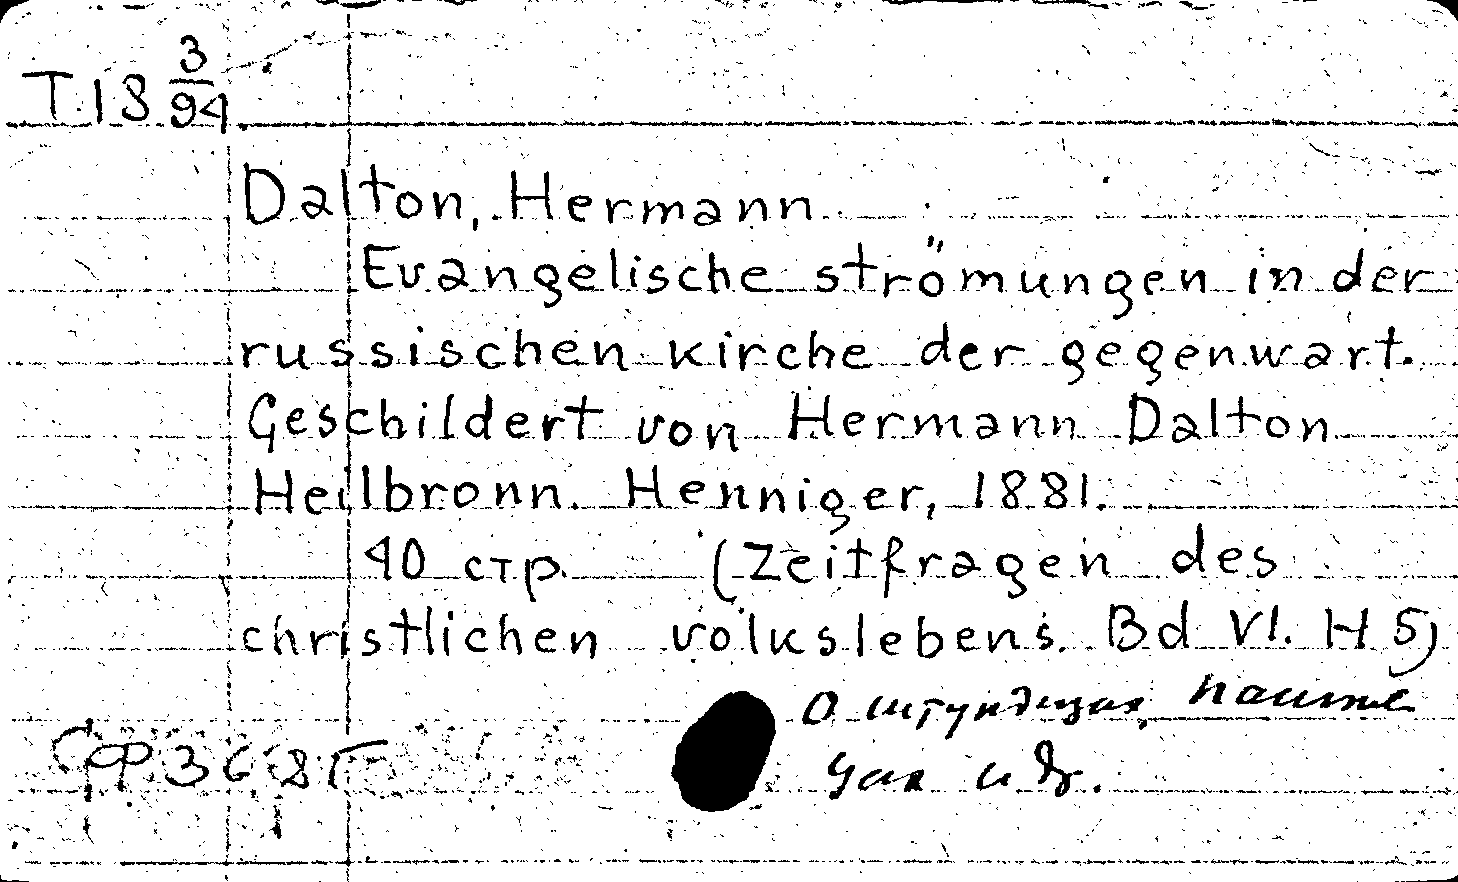 T.18 3/94
Dalton, Hermann
Evangelische strömungen in der
russischen kirche der gegenwart.
Geschildert von Hermann Dalton
Heilbronn. Henniger, 1881.
40 стр. (Zeitfragen des
christlichen volkslebens. Bd VI. H 5)
О штундизме,
и др.